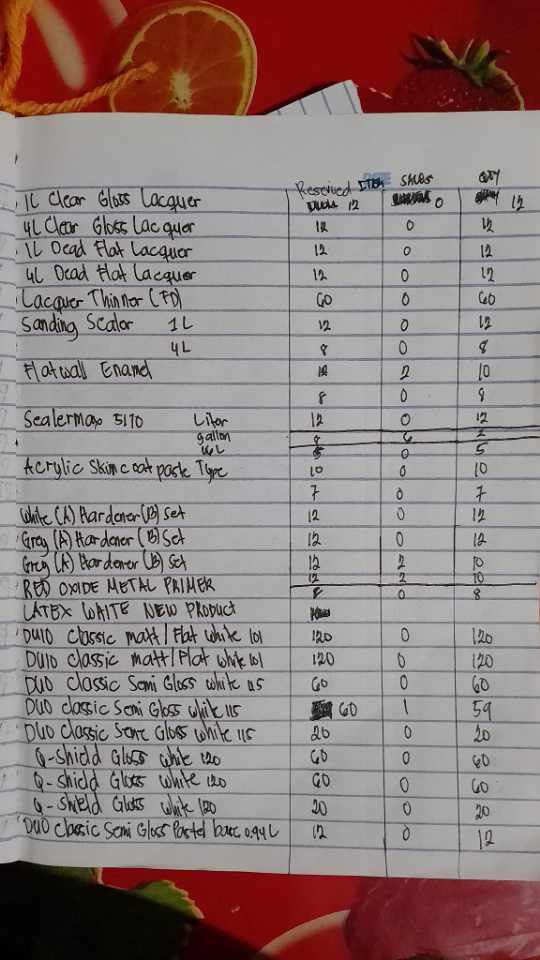 Received ITEM SALES QTY
1L Clear Gloss Lacquer 12 0 12
4L Clear Gloss Lacquer 12 0 12
1L Dead Flat Lacquer 12 0 12
4L Dead Flat Lacquer 12 0 12
Lacquer Thinner (FD) 60 0 60
Sanding Sealer 1L 12 0 12
4L 8 0 8
Flatwall Enamel 12 2 10
8 0 8
Sealermax 5170 Liter 12 0 12
gallon 8 6 2
16L 5 0 5
Acrylic Skimcoat paste Type 10 0 10
7 0 7
White (A) Hardener (B) Set 12 0 12
Grey (A) Hardener (B) Set 12 0 12
Grey (A) Hardener (B) Set 12 2 10
12 2 10
RED OXIDE METAL PRIMER 8 0 8
LATEX WHITE NEW PRODUCT
DUO Classic matt/Flat White 101 120 0 120
DUO classic matt/Flat white 101 120 0 120
DUO Classic Semi Gloss white 115 60 0 60
DUO classic Semi Gloss white 115 60 1 59
DUO Classic Semi Gloss white 115 20 0 20
Q-Shield Gloss white 120 60 0 60
Q-Shield Gloss White 120 60 0 60
Q-Shield Gloss white 120 20 0 20
DUO Classic Semi Gloss Pastel base 0.94L 12 0 12